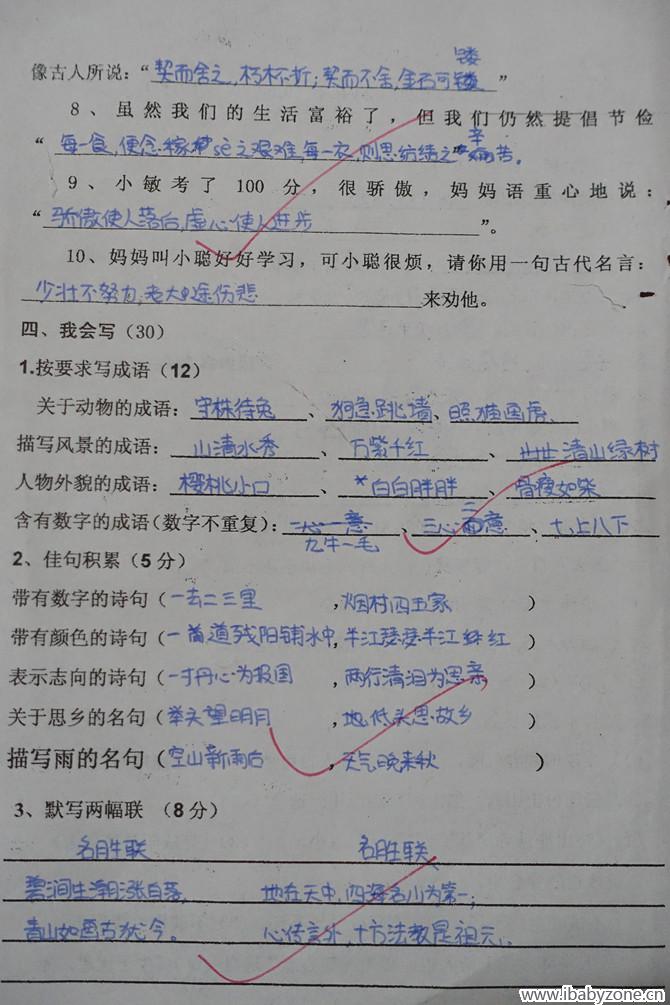 镂
像古人所说：“契而舍之，朽木不折；契而不舍，金石可镂”
8、虽然我们的生活富裕了，但我们仍然提倡节俭
辛
“每一食，便念稼穑sè之艰难，每一衣，则思纺绩之苦。
9、小敏考了 100 分，很骄傲，妈妈语重心地说：
“骄傲使人落后，虚心使人进步”。
10、妈妈叫小聪好好学习，可小聪很烦，请你用一句古代名言：
少壮不努力，老大徒伤悲来劝他。
四、我会写（30）
1.按要求写成语（12）
关于动物的成语：守株待兔、狗急跳墙、照猫画虎、
描写风景的成语：山清水秀、万紫千红、清山绿树
人物外貌的成语：樱桃小口、*白白胖胖、骨瘦如柴
含有数字的成语（数字不重复）：一心一意、三心二意、七上八下
九牛一毛
2、佳句积累（5 分）
带有数字的诗句（一去二三里，烟村四五家）
带有颜色的诗句（一道残阳铺水中，半江瑟瑟半江红）
表示志向的诗句（一寸丹心为报国，两行清泪为思亲）
关于思乡的名句（举头望明月，地低头思故乡）
描写雨的名句（空山新雨后，天气晚来秋）
3、默写两幅联 （8 分）
名胜联 名胜联
碧涧生潮涨自落， 地在天中，四海名山为第一；
青山如画古犹今。 心传言外，十方法教是祖元。
www.ibabyzone.cn